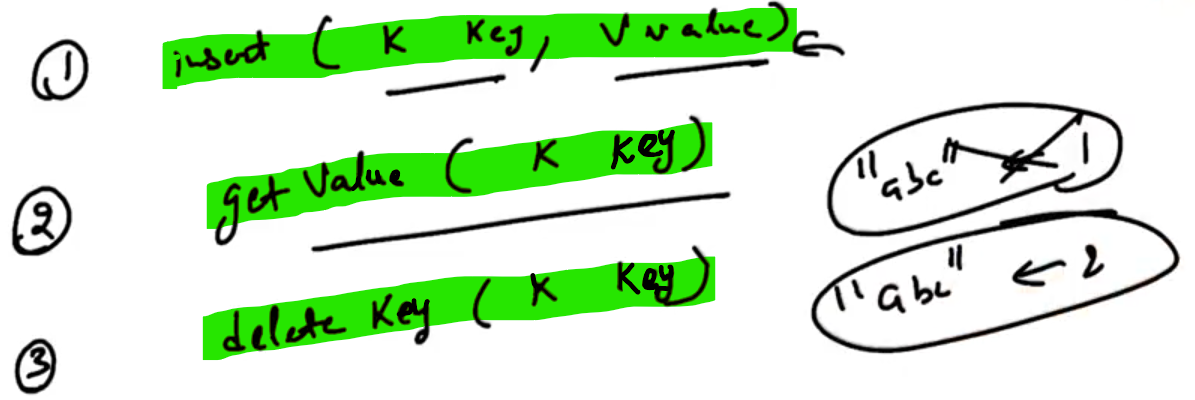 ① insert ( K Key, V value) ←
② get Value ( K Key)
"abc" ← 1
③ delete Key ( K Key)
"abc" ← 2